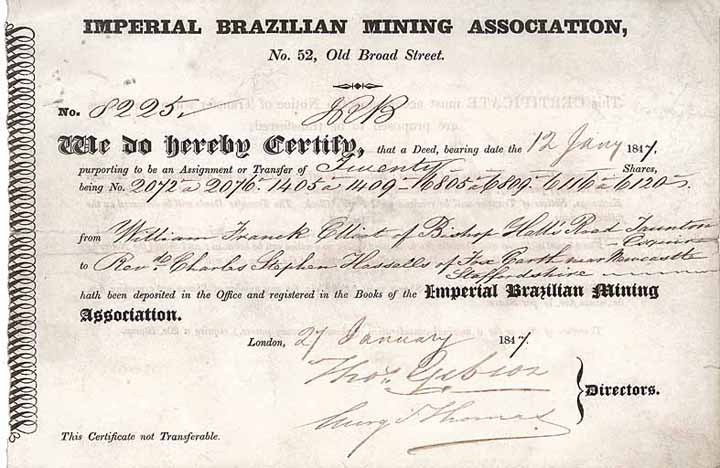 IMPERIAL BRAZILIAN MINING ASSOCIATION,
No. 52, Old Broad Street.
No. 8225
We do hereby Certify, that a Deed, bearing date the 12 Jany 1847,
purporting to be an Assignment or Transfer of Twenty Shares,
being No. 2072 a 2076. 1405 a 1409 - 6805 a 6809 - 6116 a 6120
from William Franck Elliot of Bishop Hall Road Taunton
Esquire
to Revnd. Charles Stephen Hassells of Fox Earth near Newcastle
Staffordshire
hath been deposited in the Office and registered in the Books of the Imperial Brazilian Mining
Association.
London, 27 January 1847.
Thos. Gibson
Thomas
Directors.
This Certificate not Transferable.